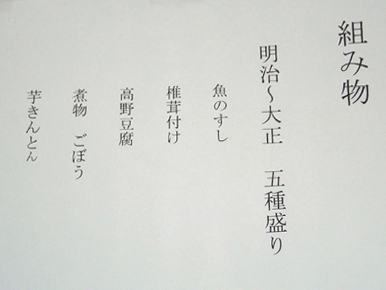 組み物
明治～大正　五種盛り
魚のすし
椎茸付け
高野豆腐
煮物　ごぼう
芋きんとん